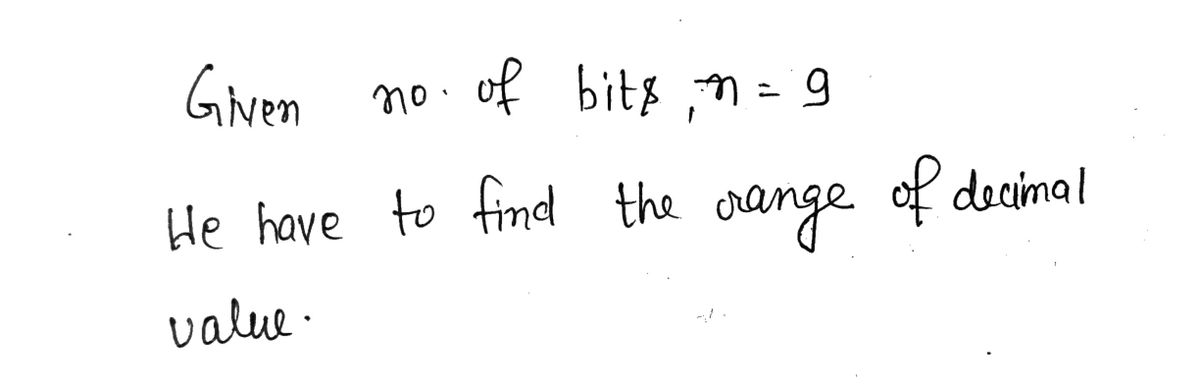 Given no. of bits, n = 9
We have to find the range of decimal
value.